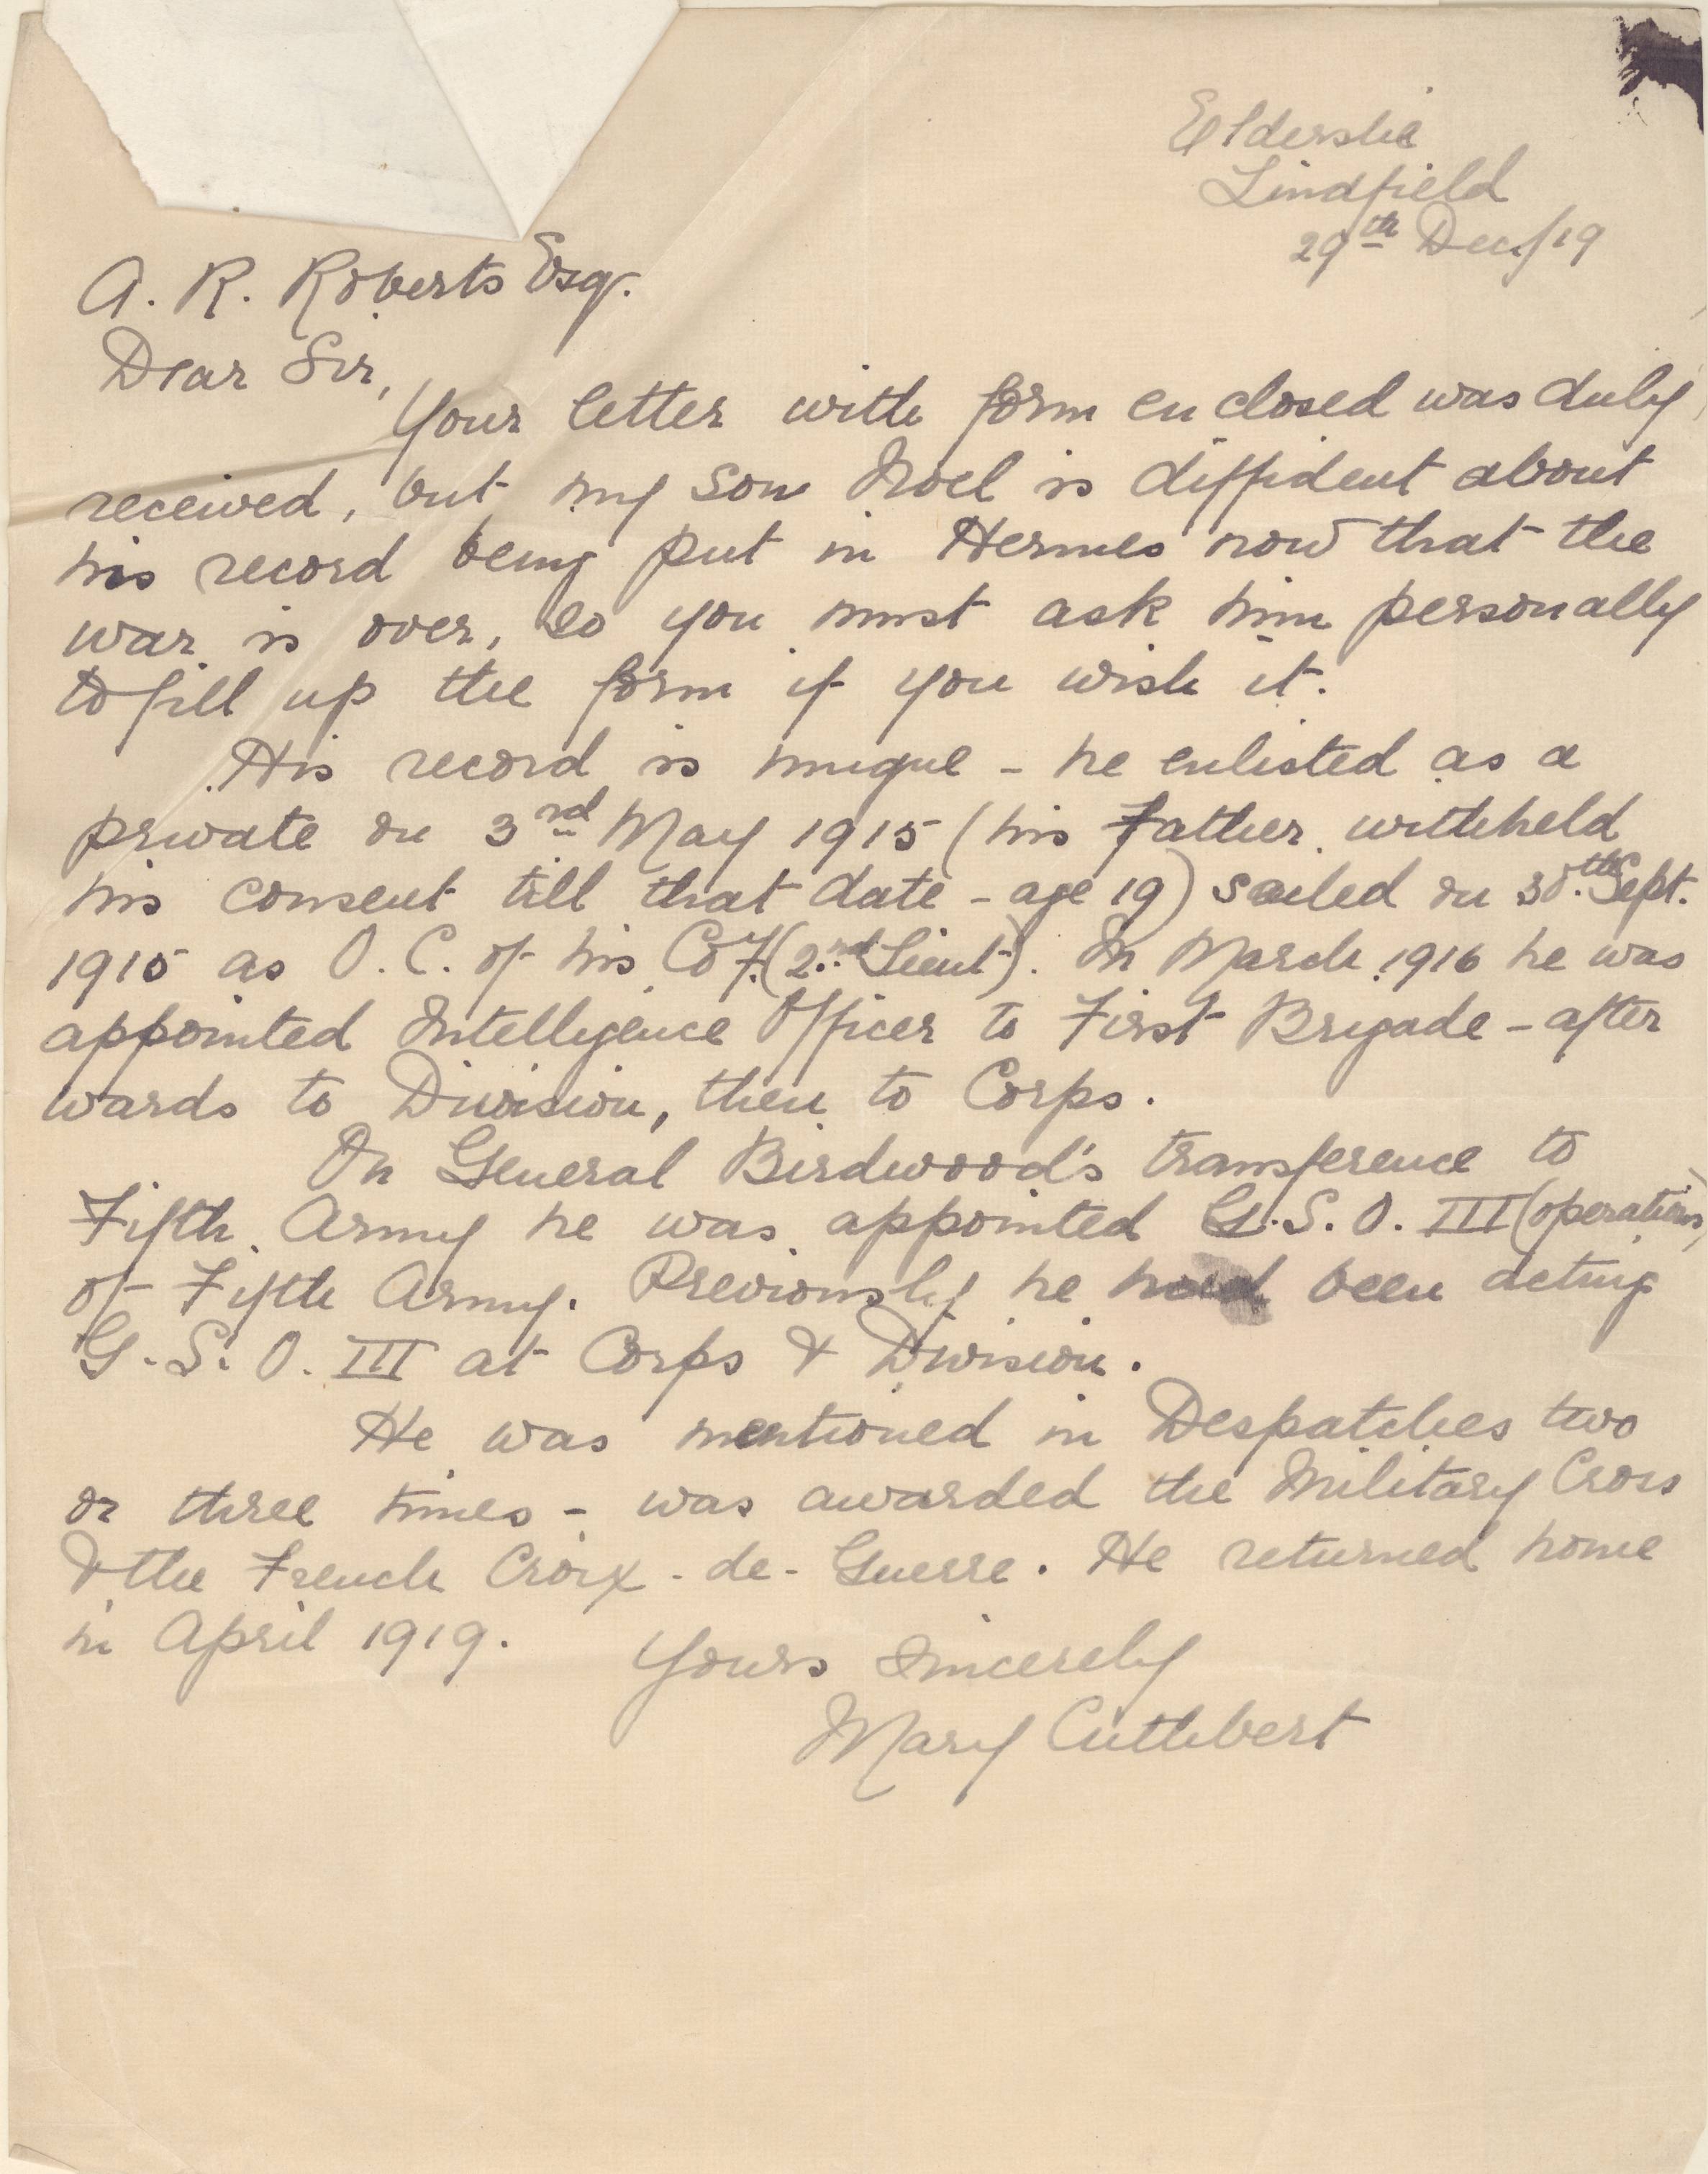 Elderslie
Lindfield
29th Dec/19
A. R. Roberts Esq.
Dear Sir,
Your letter with form enclosed was duly
received, but my son Noel is diffident about
his record being put in Hermes now that the
war is over, so you must ask him personally
to fill up the form if you wish it.
His record is unique - he enlisted as a
private on 3rd May 1915 (his Father withheld
his consent till that date - age 19) sailed on 30th Sept.
1915 as O. C. of his Coy. (2nd Lieut). In March 1916 he was
appointed Intelligence Officer to First Brigade - after
wards to Division, then to Corps.
On General Birdwood's transference to
Fifth Army he was appointed G.S.O. III (operations)
of Fifth Army. Previously he had been acting
G.S.O. III at Corps & Division.
He was mentioned in Despatches two
or three times - was awarded the Military Cross
& the French Croix-de-Guerre. He returned home
in April 1919.
Yours sincerely
Mary Cuthbert